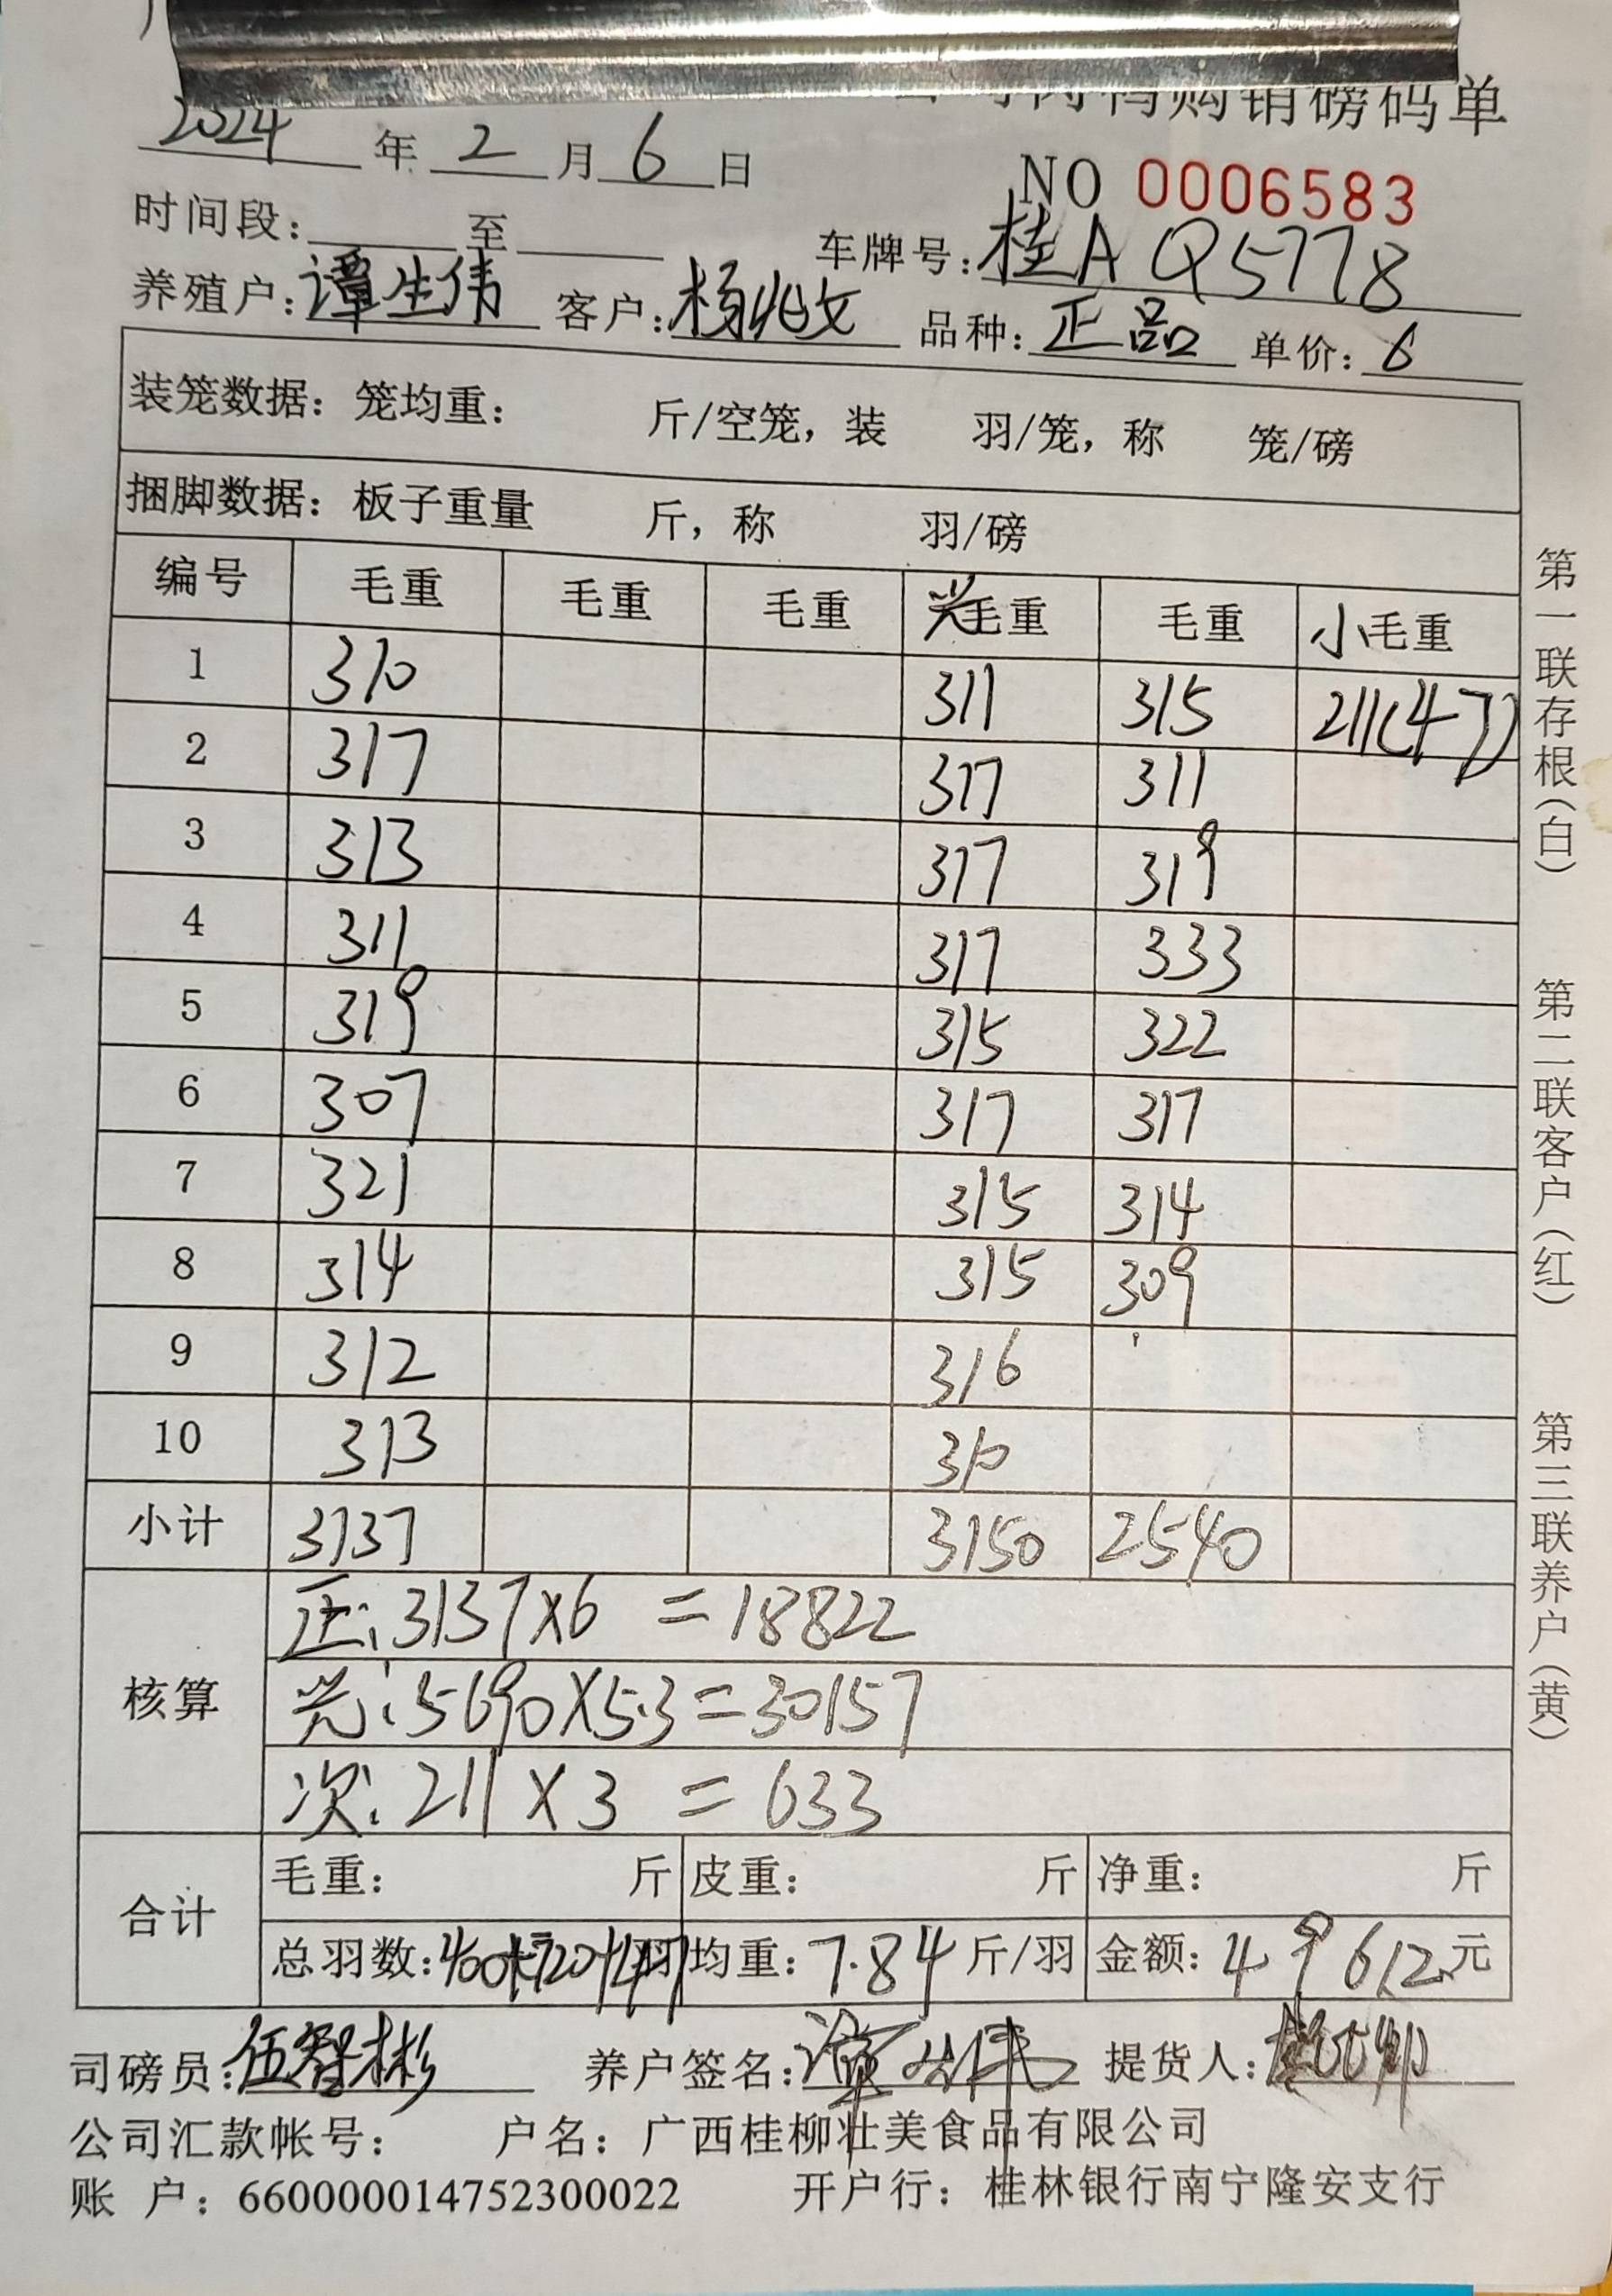 购销磅码单
2024 年 2 月 6 日
NO 0006583
时间段: 至 车牌号: 桂A Q5778
养殖户: 谭生伟 客户: 杨兆文 品种: 正品 单价: 6
装笼数据: 笼均重: 斤/空笼, 装 羽/笼, 称 笼/磅
捆脚数据: 板子重量 斤, 称 羽/磅
编号 毛重 毛重 毛重 光毛重 毛重 小毛重
1 310 311 315 211(47)
2 317 317 311
3 313 317 319
4 311 317 333
5 319 315 322
6 307 317 317
7 321 315 314
8 314 315 309
9 312 316
10 313 310
小计 3137 3150 2540
核算
正: 3137×6 = 18822
光: 5690×5.3=30157
次: 211 × 3 = 633
合计
毛重: 斤 皮重: 斤 净重: 斤
总羽数: 400+720+47羽 均重: 7.84 斤/羽 金额: 49612元
司磅员: 伍智彬 养户签名: 谭生伟 提货人:
公司汇款帐号: 户名: 广西桂柳壮美食品有限公司
账 户: 660000014752300022 开户行: 桂林银行南宁隆安支行
第一联存根(白)
第二联客户(红)
第三联养户(黄)